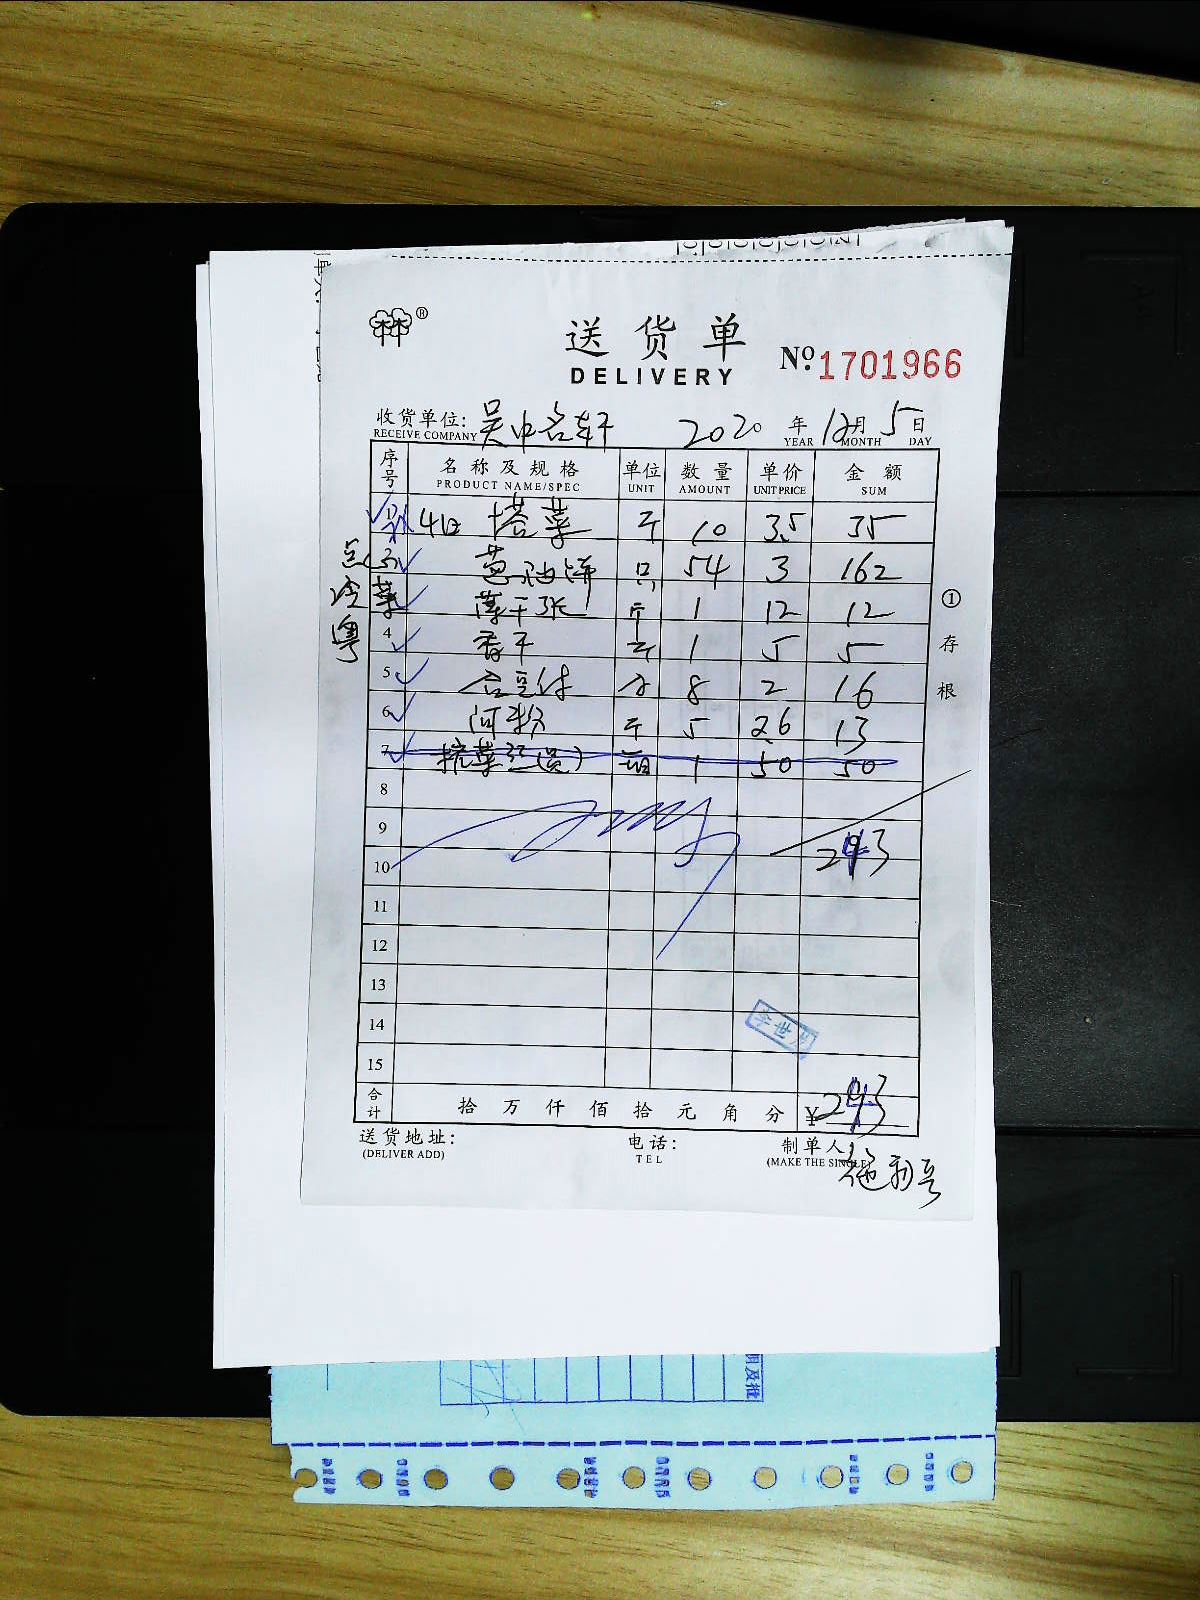 林®
送货单
DELIVERY
No. 1701966
收货单位: 吴中名轩 2020 年 12 月 5 日
RECEIVE COMPANY YEAR MONTH DAY
序号 名称及规格 单位 数量 单价 金额
PRODUCT NAME/SPEC UNIT AMOUNT UNIT PRICE SUM
1 4日 塔菜 斤 10 3.5 35
葱油饼 只 54 3 162
薄千张 斤 1 12 12
4 香干 斤 1 5 5
5 8 2 16
6 河粉 斤 5 2.6 13
7 1 50 50
8
9
243
10
11
12
13
14
15
合计 拾 万 仟 佰 拾 元 角 分 ¥243
送货地址: 电话: 制单人
(DELIVER ADD) TEL (MAKE THE SINGLE)
点心
冷菜
粤
①存根